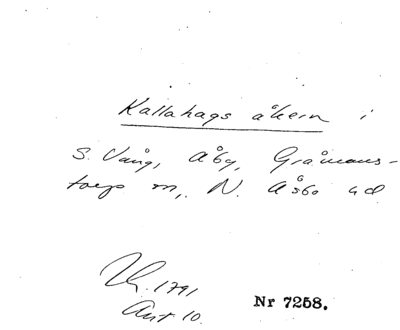 Kallahags åkern i
S. Vång, Åby, Gråmans-
torps sn, N. Åsbo hd
1791
Akt 10.
Nr 7258.